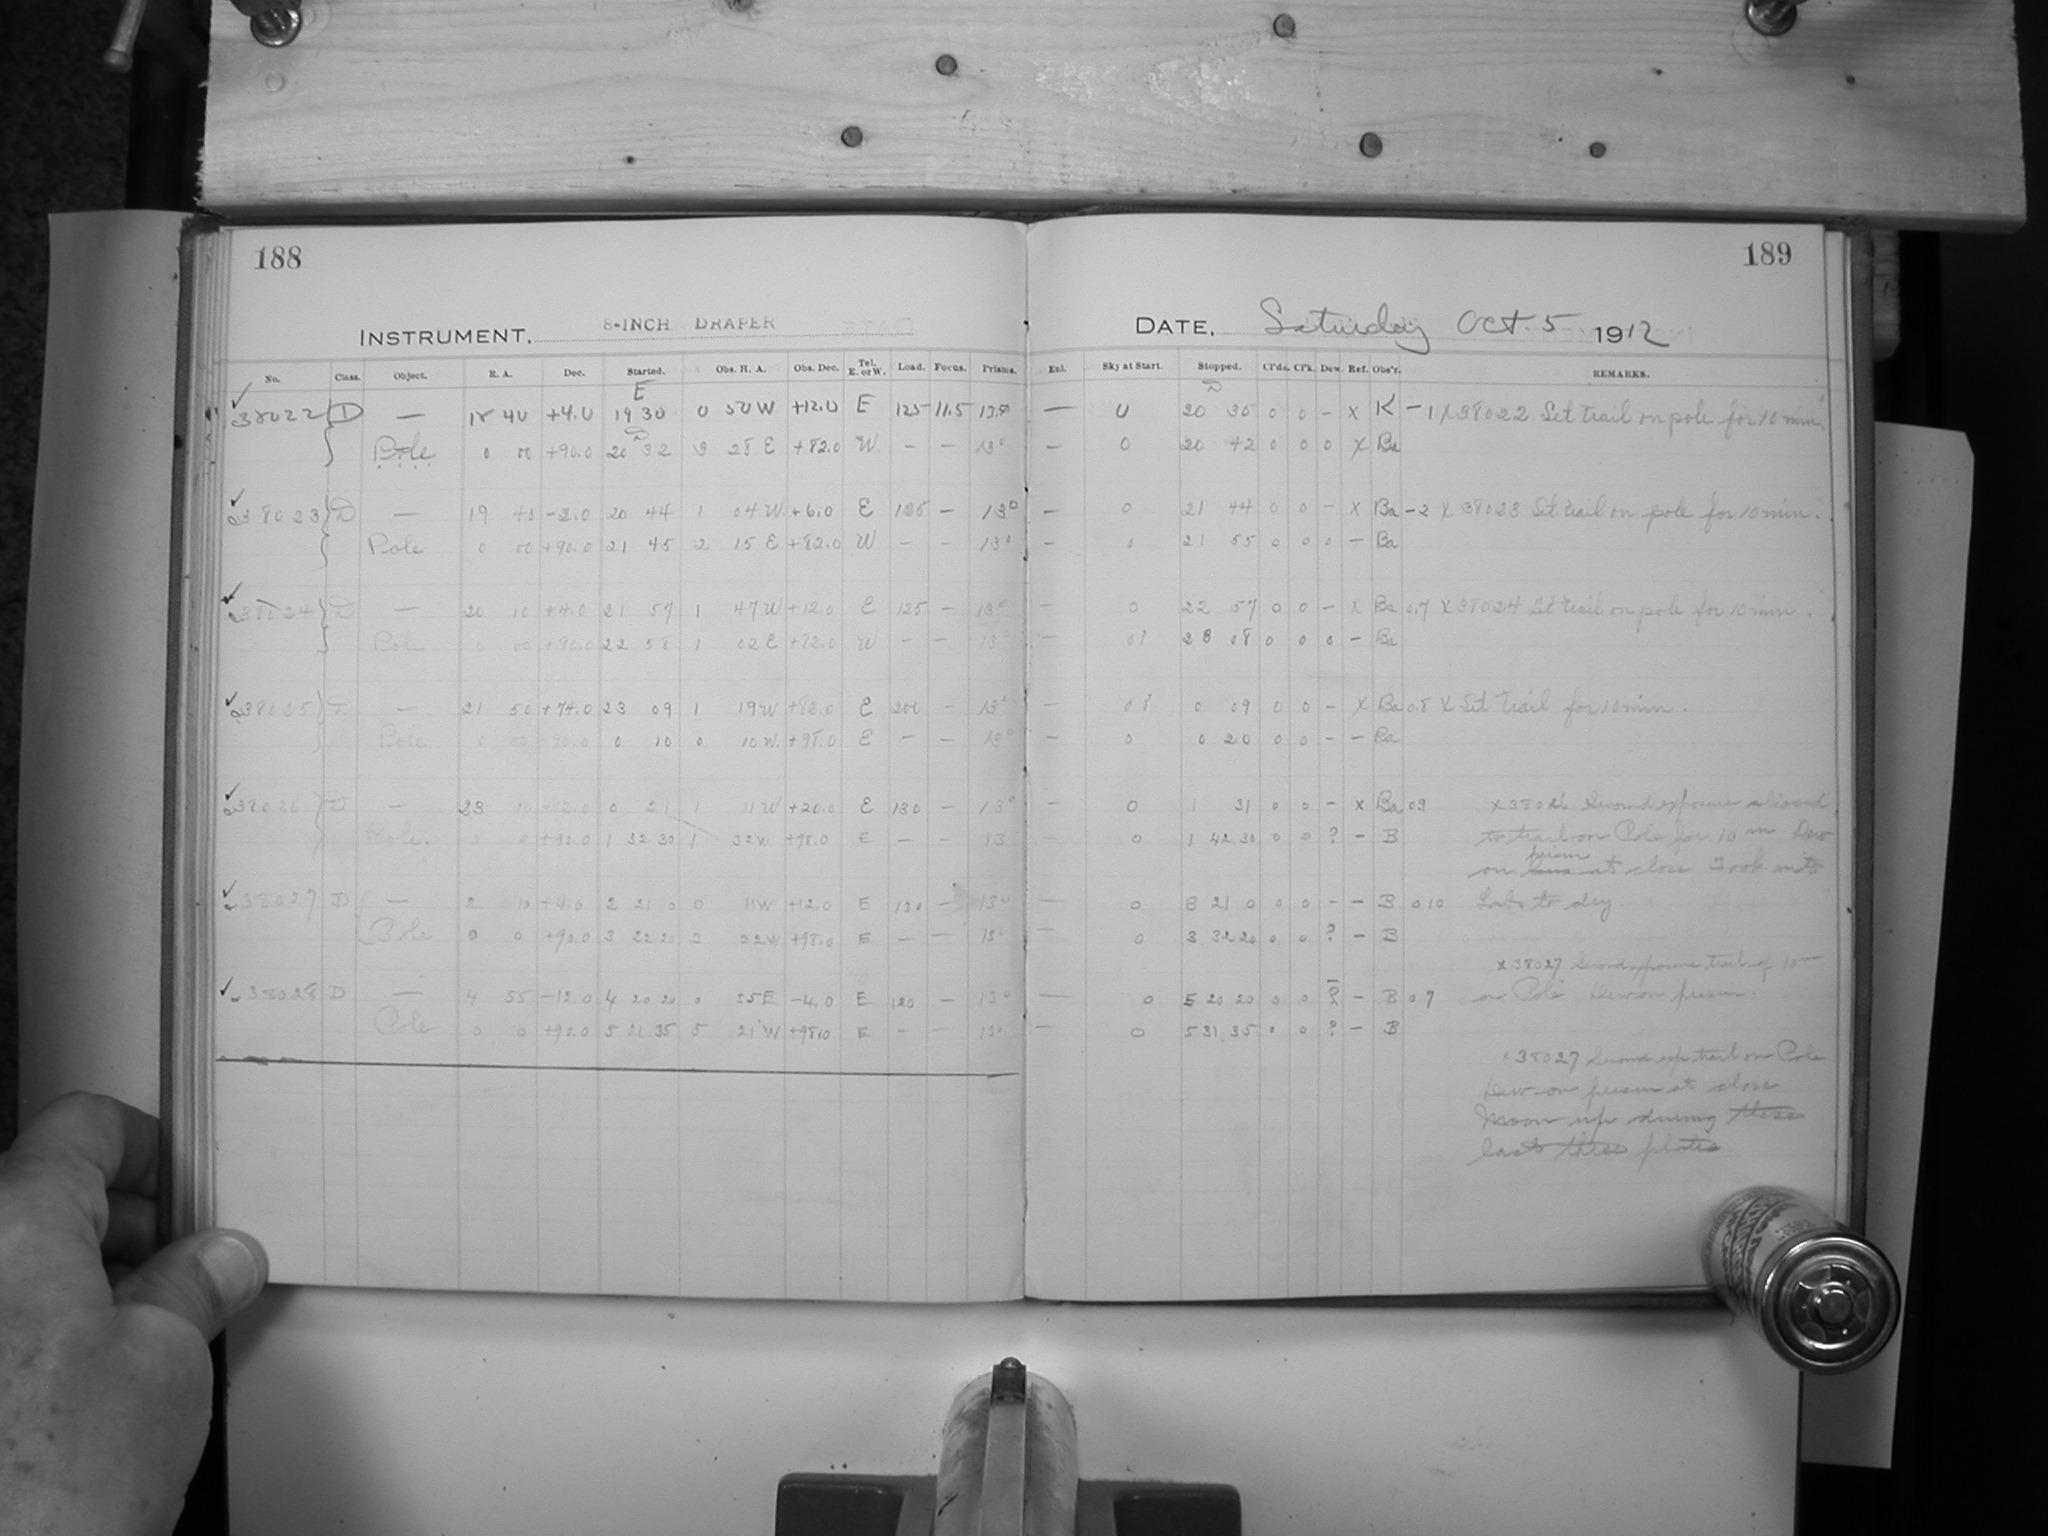 188
189
INSTRUMENT, 8-INCH DRAPER
DATE, Saturday Oct. 5 1912
No. Class. Object. R. A. Dec. Started. Obs. H. A. Obs. Dec. Tel. E. or W. Load. Focus. Prisms. Enl. Sky at Start. Stopped. Cl'ds. Cl'k. Dew. Ref. Obs'r. REMARKS.
E
38022 D — 18 40 +4.0 19 30 0 50 W +12.0 E 125 11.5 13° — 0 20 30 0 0 - x K -1 x 38022 Set trail on pole for 10 min.
Pole 0 00 +90.0 20 32 3 28 E +82.0 W — — 13° — 0 20 42 0 0 0 x Ba
38023 D — 19 40 -2.0 20 44 1 04 W. +6.0 E 125 — 13° — 0 21 44 0 0 - x Ba -2 x 38023 Set trail on pole for 10 min.
Pole 0 00 +90.0 21 45 2 15 E +82.0 W — — 13° — 0 21 55 0 0 0 - Ba
38024 D — 20 10 +4.0 21 57 1 47 W +12.0 E 125 - 13° — 0 22 57 0 0 - x Ba 0.7 x 38024 Set trail on pole for 10 min.
Pole 0 00 +90.0 22 58 1 02 E +82.0 W — — 13° — 0? 23 08 0 0 0 - Ba
38025 D — 21 50 +74.0 23 09 1 19 W +82.0 E 200 - 13° — 0? 0 09 0 0 - x Ba 0.8 x Set trail for 10 min.
Pole 0 00 +90.0 0 10 0 10 W. +98.0 E — — 13° — 0 0 20 0 0 - - Ba
38026 D — 23 10 0 21 1 11 W +20.0 E 130 - 13° — 0 1 31 0 0 - x Ba 0.9 x 38026 Second exposure allowed
Pole. 0 0 +90.0 1 32 30 1 32 W +98.0 E — — 13 0 1 42 30 0 0 ? - B to trail on Pole for 10 m Dew
prism
on lens at close Took into
38027 D — 2 10 +4.0 2 21 0 0 11 W +12.0 E 130 - 13° — 0 3 21 0 0 0 - - B 0.10 Lab. to dry.
Pole 0 0 +90.0 3 22 20 2 22 W +98.0 E — — 13° 0 3 32 20 0 0 ? - B
x 38027 Second exposure trail of 10 m
38028 D — 4 55 -12.0 4 20 20 0 35 E -4.0 E 120 - 13° — 0 5 20 20 0 0 ? - B 0.7 on Pole Dew on prism.
Pole 0 0 +90.0 5 21 35 5 21 W +98.0 E — — 13° — 0 5 31 35 0 0 ? - B
x 38027 Second exp trail on Pole
Dew on prism at close
Moon up during these
last three plates